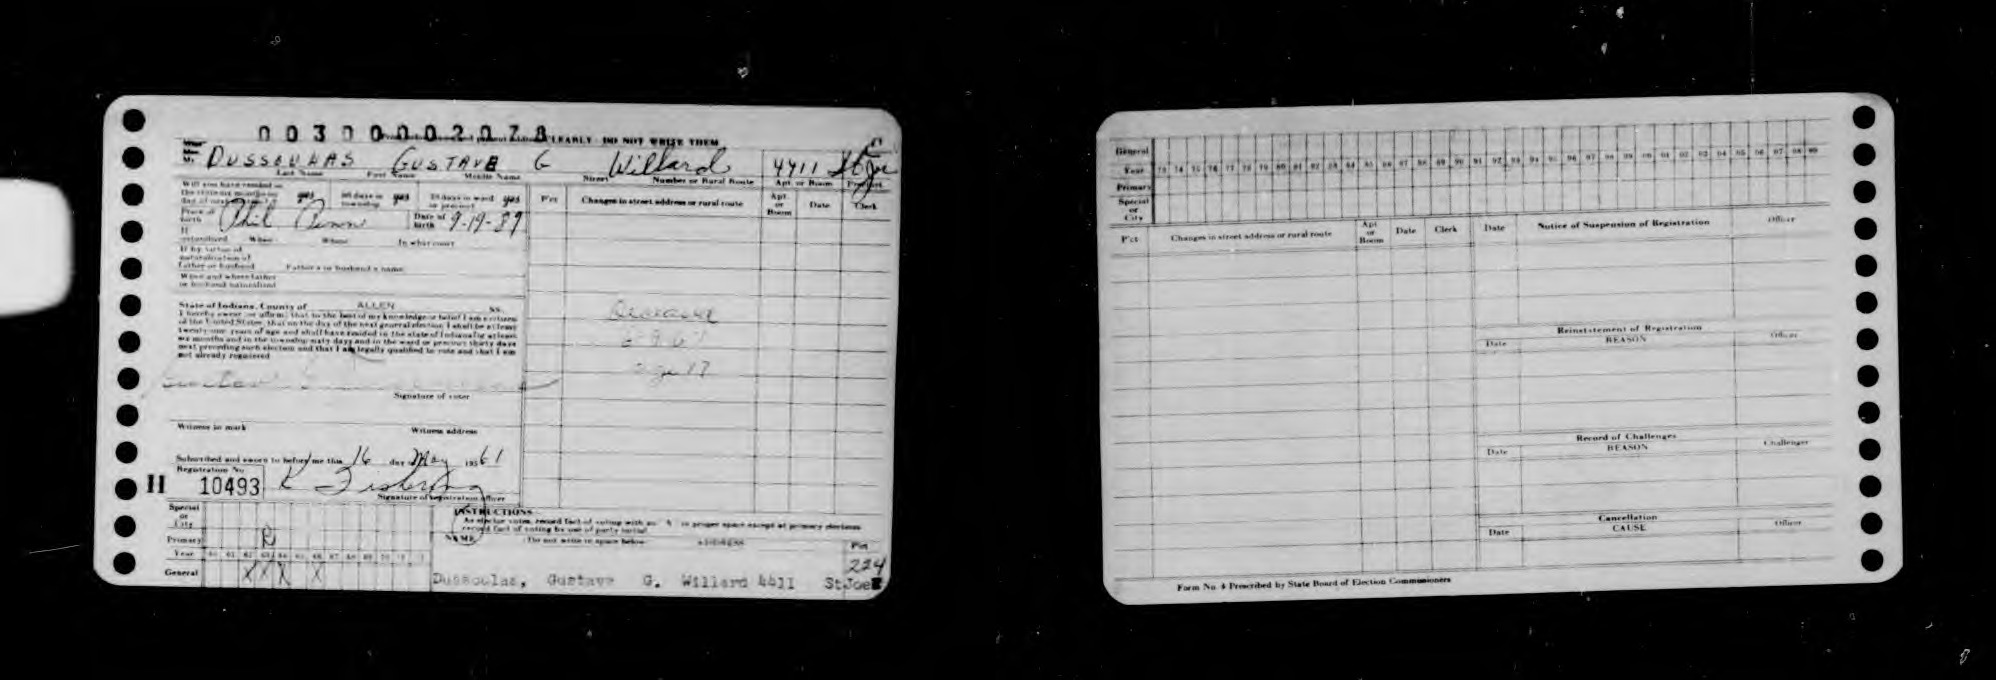 00300002078 CLEARLY - DO NOT WRITE THEM
Mr. DUSSOULAS GUSTAVE G Willard 4411 St Joe
Last Name First Name Middle Name Street Number or Rural Route Apt. or Room Precinct
Will you have resided in the state six months on day of next election yes 60 days in township yes 30 days in ward or precinct yes
P'ct Changes in street address or rural route Apt. or Room Date Clerk
Place of birth Phil Penn Date of birth 9-19-89
If naturalized When Where In what court
If by virtue of naturalization of father or husband Father's or husband's name
When and where father or husband naturalized
State of Indiana, County of ALLEN SS.
I hereby swear (or affirm) that to the best of my knowledge or belief I am a citizen
of the United States, that on the day of the next general election I shall be at least
twenty-one years of age and shall have resided in the state of Indiana for at least
six months and in the township sixty days and in the ward or precinct thirty days
next preceding such election and that I am legally qualified to vote and that I am
not already registered
Deceased
Signature of voter
Witness to mark Witness address
Subscribed and sworn to before me this 16 day May 1961
Registration No.
H 10493 K
Signature of registration officer
Special or City
Primary R
Year 60 61 62 63 64 65 66 67 68 69 70 71
General X X X X
INSTRUCTIONS
As elector votes, record fact of voting with an X in proper space except at primary elections
record fact of voting by use of party initial
NAME (Do not write in space below) ADDRESS Pct
224
Dussoulas, Gustave G. Willard 4411 St Joe
General
Year 73 74 75 76 77 78 79 80 81 82 83 84 85 86 87 88 89 90 91 92 93 94 95 96 97 98 99 00 01 02 03 04 05 06 07 08 09
Primary
Special or City
P'ct Changes in street address or rural route Apt or Room Date Clerk
Date Notice of Suspension of Registration Officer
Reinstatement of Registration
Date REASON Officer
Record of Challenges
Date REASON Challenger
Cancellation
Date CAUSE Officer
Form No. 4 Prescribed by State Board of Election Commissioners